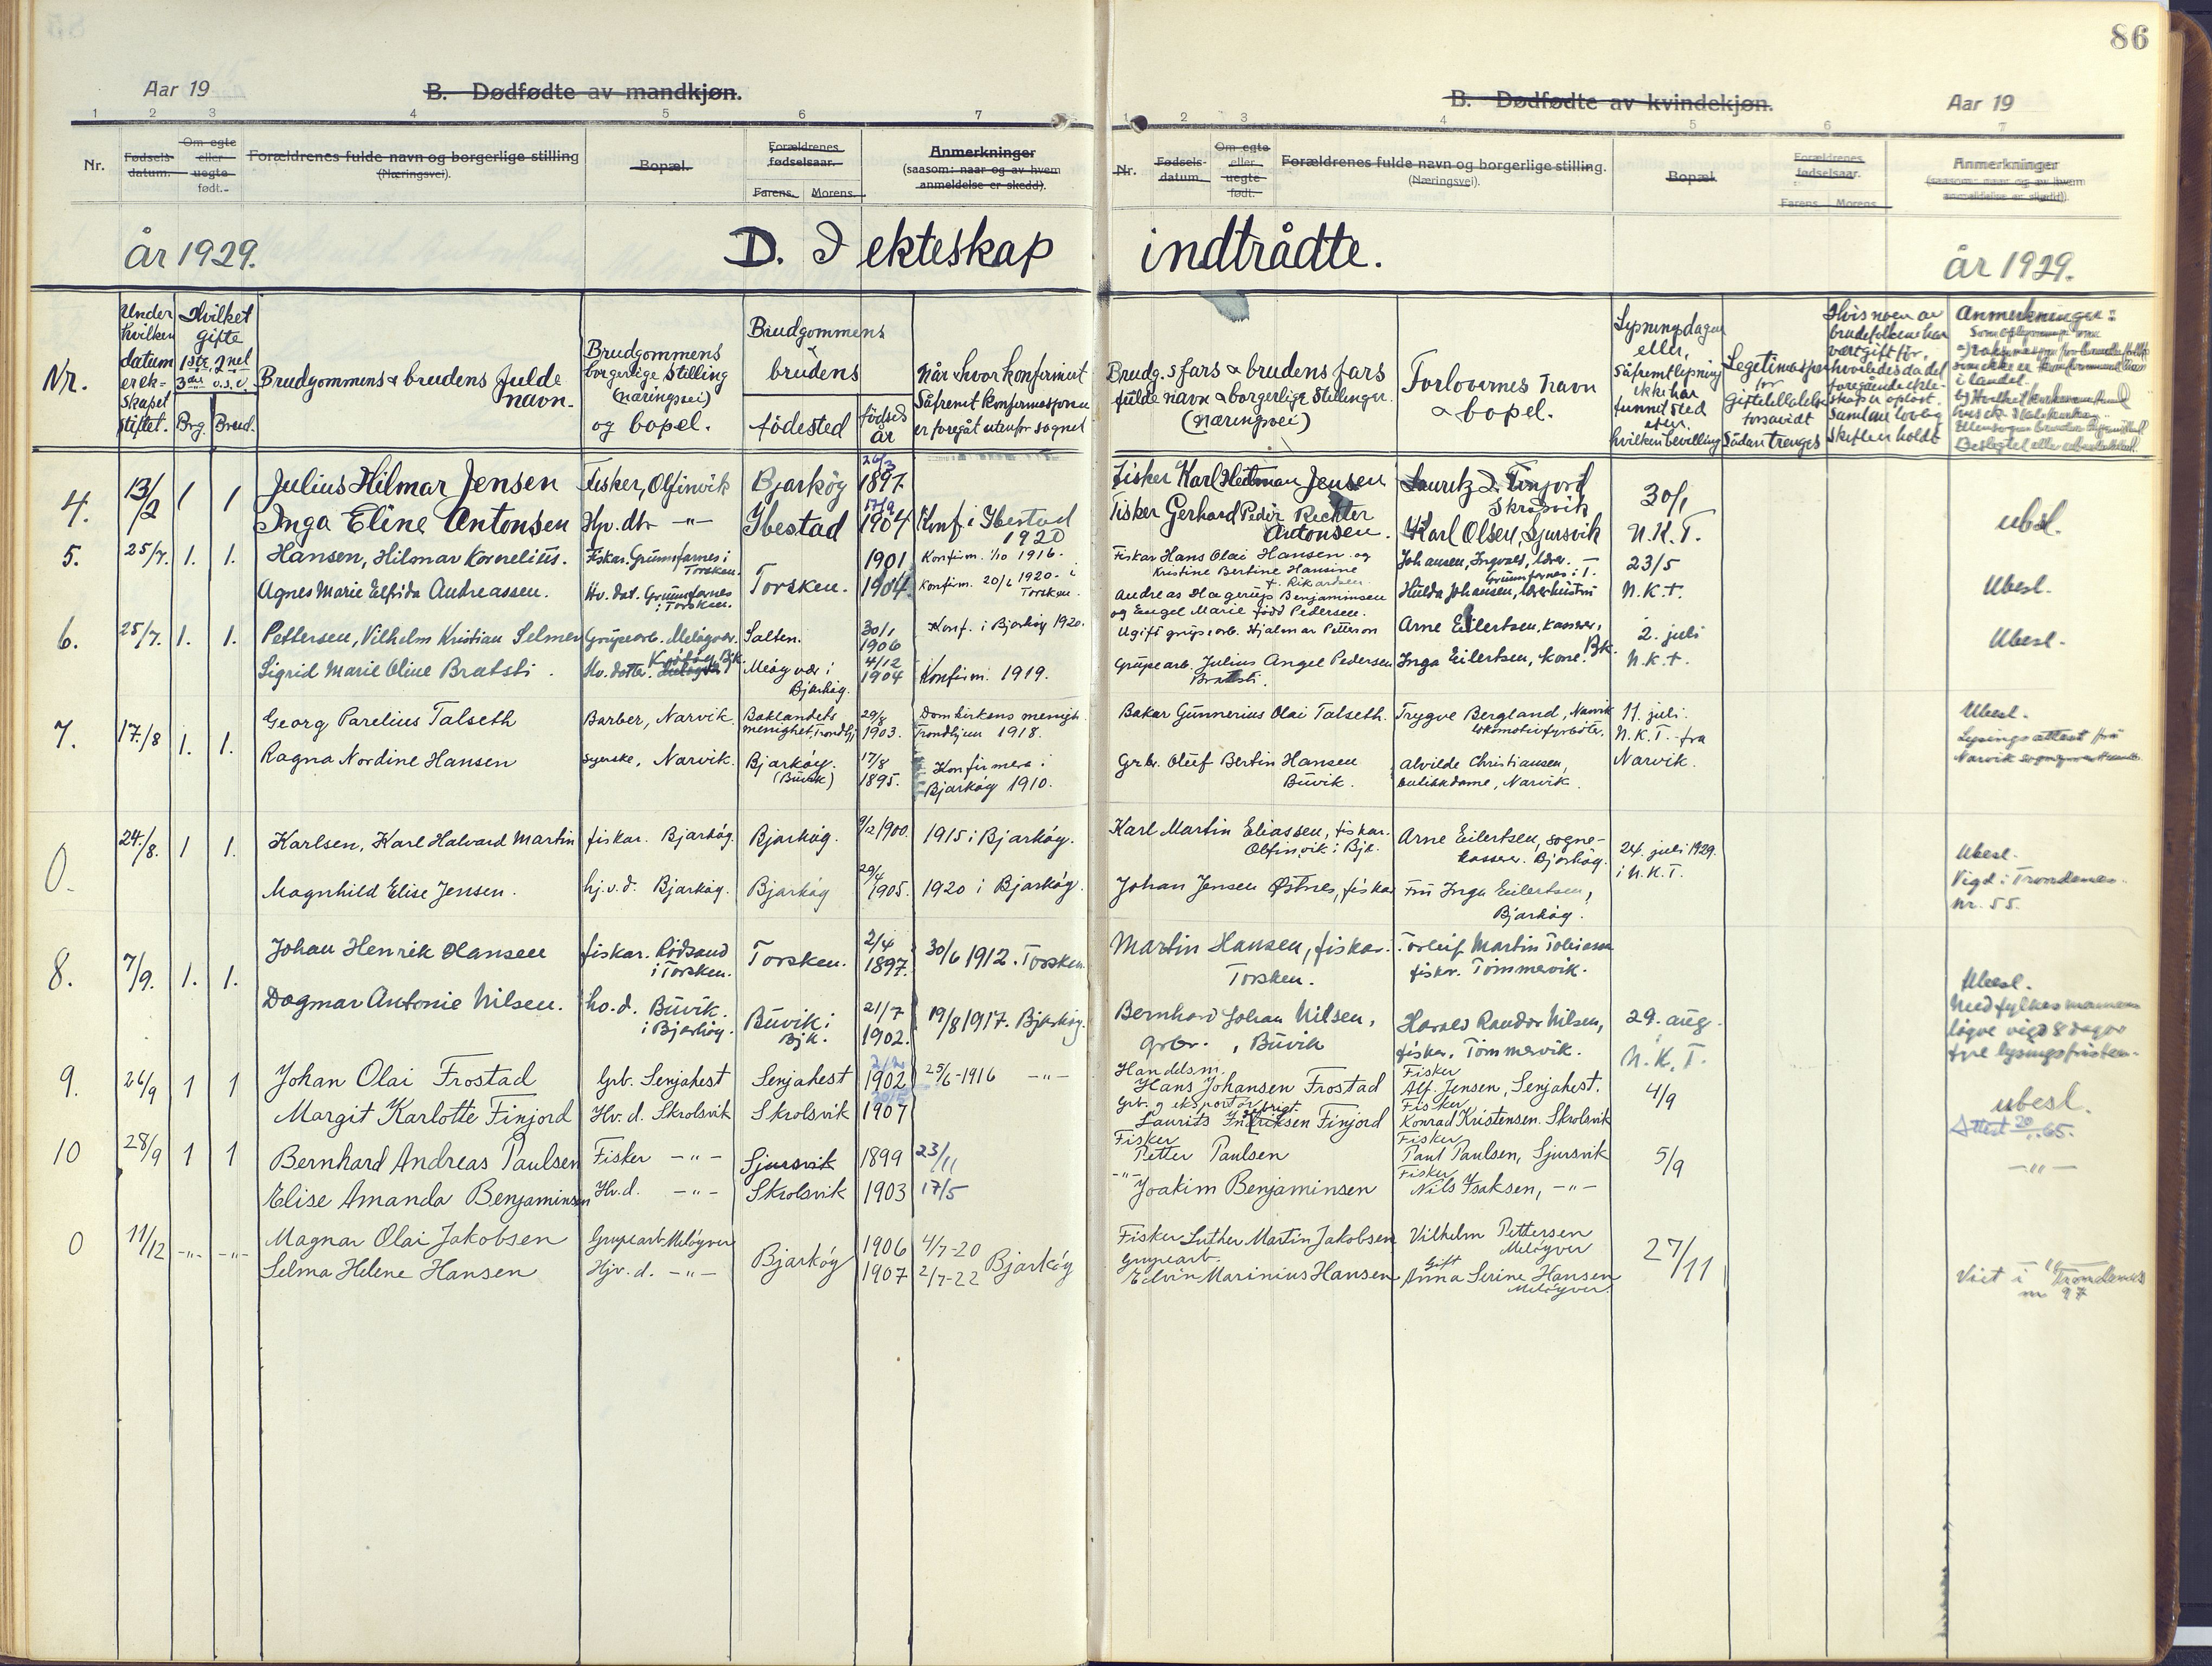 86
Aar 19
B. Dødfødte av mandkjøn.
1 2 3 4 5 6 7
Nr.
Fødsels-
datum.
Om egte
eller
uegte
født.
Forældrenes fulde navn og borgerlige stilling
(Næringsvei).
Bopæl.
Forældrenes
fødselsaar.
Farens. Morens.
Anmerkninger
(saasom: naar og av hvem
anmeldelse er skedd).
B. Dødfødte av kvindekjøn.
Aar 19
1 2 3 4 5 6 7
Nr.
Fødsels-
datum.
Om egte
eller
uegte
født.
Forældrenes fulde navn og borgerlige stilling.
(Næringsvei).
Bopæl.
Forældrenes
fødselsaar.
Farens. Morens.
Anmerkninger
(saasom: naar og av hvem
anmeldelse er skedd).
år 1929.
D. I ekteskap indtrådte.
år 1929.
Nr.
Under
hvilken
datum
er ek-
skapet
stiftet.
Hvilket
gifte
1ste, 2net
3die o.s.v.
Brg. Brud.
Brudgommens & brudens fulde
navn.
Brudgommens
borgerlige stilling
(næringsvei)
og bopel.
Brudgommens
&
brudens
fødested
fødsels
år
Når & hvor konfirmert
Såfremt konfirmasjonen
er foregåt utenfor sognet
Brudg.s fars & brudens fars
fulde navn & borgerlige stillinger
(næringsvei)
Forlovernes navn
& bopel.
Lysningsdagen
eller,
såfremt lysning
ikke har
funnet sted
efter
hvilken bevilling
Legitimasjon
for
giftetilladelse
forsåvidt
Sådan trenges
Hvis noen av
brudefolkene har
vært gift før,
hvorledes da det
foregående ekte-
skap er opløst.
Samt om lovlig
skifte er holdt
Anmerkninger:
i landet.
4.
13/2
1 1
Julius Hilmar Jensen
Fisker, Olfinvik
Bjarkøy
26/3
1897.
Fisker Karl Hetman Jensen
Lauritz D. Finjord
Skrolsvik
30/1
ubsl.
Inga Eline Antonsen
Hp. dtr -"-
Ibestad
17/9
1904
Konf. i Ibestad
1920
Fisker Gerhard Peder Rechter
Antonsen.
Karl Olsen, Sjursvik
N.K.T.
5.
25/7.
1. 1.
Hansen, Hilmar Kornelius.
Fiskar. Grunnfarnes i
Torsken.
1901
Konfirm. 1/10 1916.
Fiskar Hans Olai Hansen og
Kristine Bertine Hansine
f. Rikardsen
Johansen, Ingvald, lærer.
Grunnfarnes i T.
23/5
Ubesl.
Agnes Marie Elfrida Andreassen.
Hv. dat. Grunnfarnes
i Torsken.
Torsken.
1904.
Konfirm. 20/6 1920. i
Torsken.
Andreas Hagerup Benjaminsen
og Engel Marie født Pedersen.
Hulda Johansen, lærerhustru
N.K.T.
6.
25/7.
1. 1.
Pettersen, Vilhelm Kristian Selmer
Grupearb. Meløyvær.
Salten.
30/1
1906
Konf. i Bjarkøy 1920.
Ugift grupearb. Hjalmar Petterson
Arne Eilertsen, kasserer,
2. juli
Ubesl.
Sigrid Marie Oline Bratsti.
Hv. datter.
Meløyvær i
Bjarkøy.
4/12
1904
Konfirm. 1919.
Grupearb. Julius Angel Pedersen
Bratsti.
Inga Eilertsen, kone. Bk.
N.K.T.
7.
17/8
1. 1.
Georg Parelius Talseth
Barber, Narvik.
Baklandets
menighet, Trondhj.
29/8
1903.
Domkirkens menigh.
Trondhjem 1918.
Bakar Gunnerius Olai Talseth.
Trygve Bergland, Narvik
lokomotivfyrbøter.
11. juli.
N.K.T. fra
Narvik.
Ubesl.
Lysingsattest frå
Ragna Nordine Hansen
syerske, Narvik.
Bjarkøy.
(Buvik)
17/8
1895.
Konfirmera i
Bjarkøy 1910.
Grbr. Oluf Bertin Hansen
Buvik.
Alvilde Christiansen,
butikkdame, Narvik.
0.
24/8.
1 1.
Karlsen, Karl Halvard Martin
fiskar. Bjarkøy.
Bjarkøy.
9/12 1900.
1915 i Bjarkøy.
Karl Martin Eliassen, fiskar.
Olfinvik i Bjk.
Arne Eilertsen, sogne-
kasserer. Bjarkøy.
24. juli 1929.
i N.K.T.
Ubesl.
Vigd i Trondenes.
nr. 55.
Magnhild Elise Jensen.
hj.v.d. Bjarkøy.
Bjarkøy
29/4
1905.
1920 i Bjarkøy.
Johan Jensen Østnes, fiskar
Fru Inga Eilertsen,
Bjarkøy.
8.
7/9.
1. 1.
Johan Henrik Hansen
fiskar. Rødsand
i Torsken.
Torsken.
2/4
1897.
30/6 1912. Torsken.
Martin Hansen, fiskar.
Torsken.
Torleif Martin Tobiassen
fiskr. Tømmervik.
Ubesl.
Med fylkesmannens
løyve vigd 8 dagar
fyre lysingsfristen.
Dagmar Antonie Nilsen.
ho.d. Buvik.
i Bjarkøy.
Buvik i
Bjk.
21/7
1902.
19/8 1917. Bjarkøy.
Bernhard Johan Nilsen,
grbr. , Buvik
Harald Randor Nilsen,
fisker, Tømmervik.
29. aug.
N.K.T.
9.
26/9
1 1
Johan Olai Frostad
Grb. Senjahest
Senjahest
2/2
1902
25/6-1916 -"-
Handelsm.
Hans Johansen Frostad
Fisker
Alf. Jensen, Senjahest.
4/9
ubesl.
Attest 20/1.65.
Margit Karlotte Finjord
Hv. d. Skrolsvik
Skrolsvik
1907
Grb. og eksportør
Laurits Finjord
Fisker
Konrad Kristensen. Skrolsvik
10
28/9
1 1
Bernhard Andreas Paulsen
Fisker -"-
Sjursvik
1899
23/11
Fisker
Petter Paulsen
Fisker
Paul Paulsen, Sjursvik
5/9
-"-
Elise Amanda Benjaminsen
Hv.d. -"-
Skrolsvik
1903
17/5
-"-
Joakim Benjaminsen
Fisker
Nils Isaksen, -"-
0
11/12
-"- -"-
Magnar Olai Jakobsen
Grupearb. Meløyvær
Bjarkøy
1906
4/7-20
Bjarkøy
Fisker Luther Martin Jakobsen
Vilhelm Pettersen
Meløyvær
27/11
Viet i Trondenes
nr 97
Selma Helene Hansen
Hjv. d. -"-
1907
2/7-22
Grupearb.
Edvin Marinius Hansen
Gift
Anna Serine Hansen
Meløyvær.